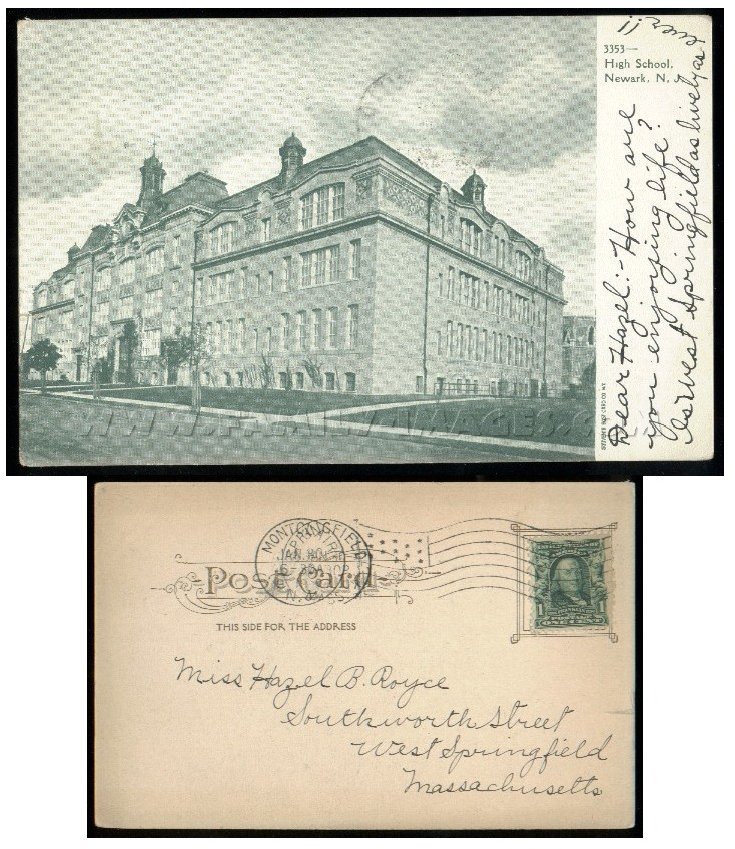 3353—
High School.
Newark, N. J.
Dear Hazel:- How are
you enjoying life?
Is West Springfield as lively as
WWW.FAMILYIMAGES.COM
Post Card
JAN 30
N. J.
THIS SIDE FOR THE ADDRESS
1
FRANKLIN
ONE CENT
Miss Hazel B. Royce
Southworth Street
West Springfield
Massachusetts